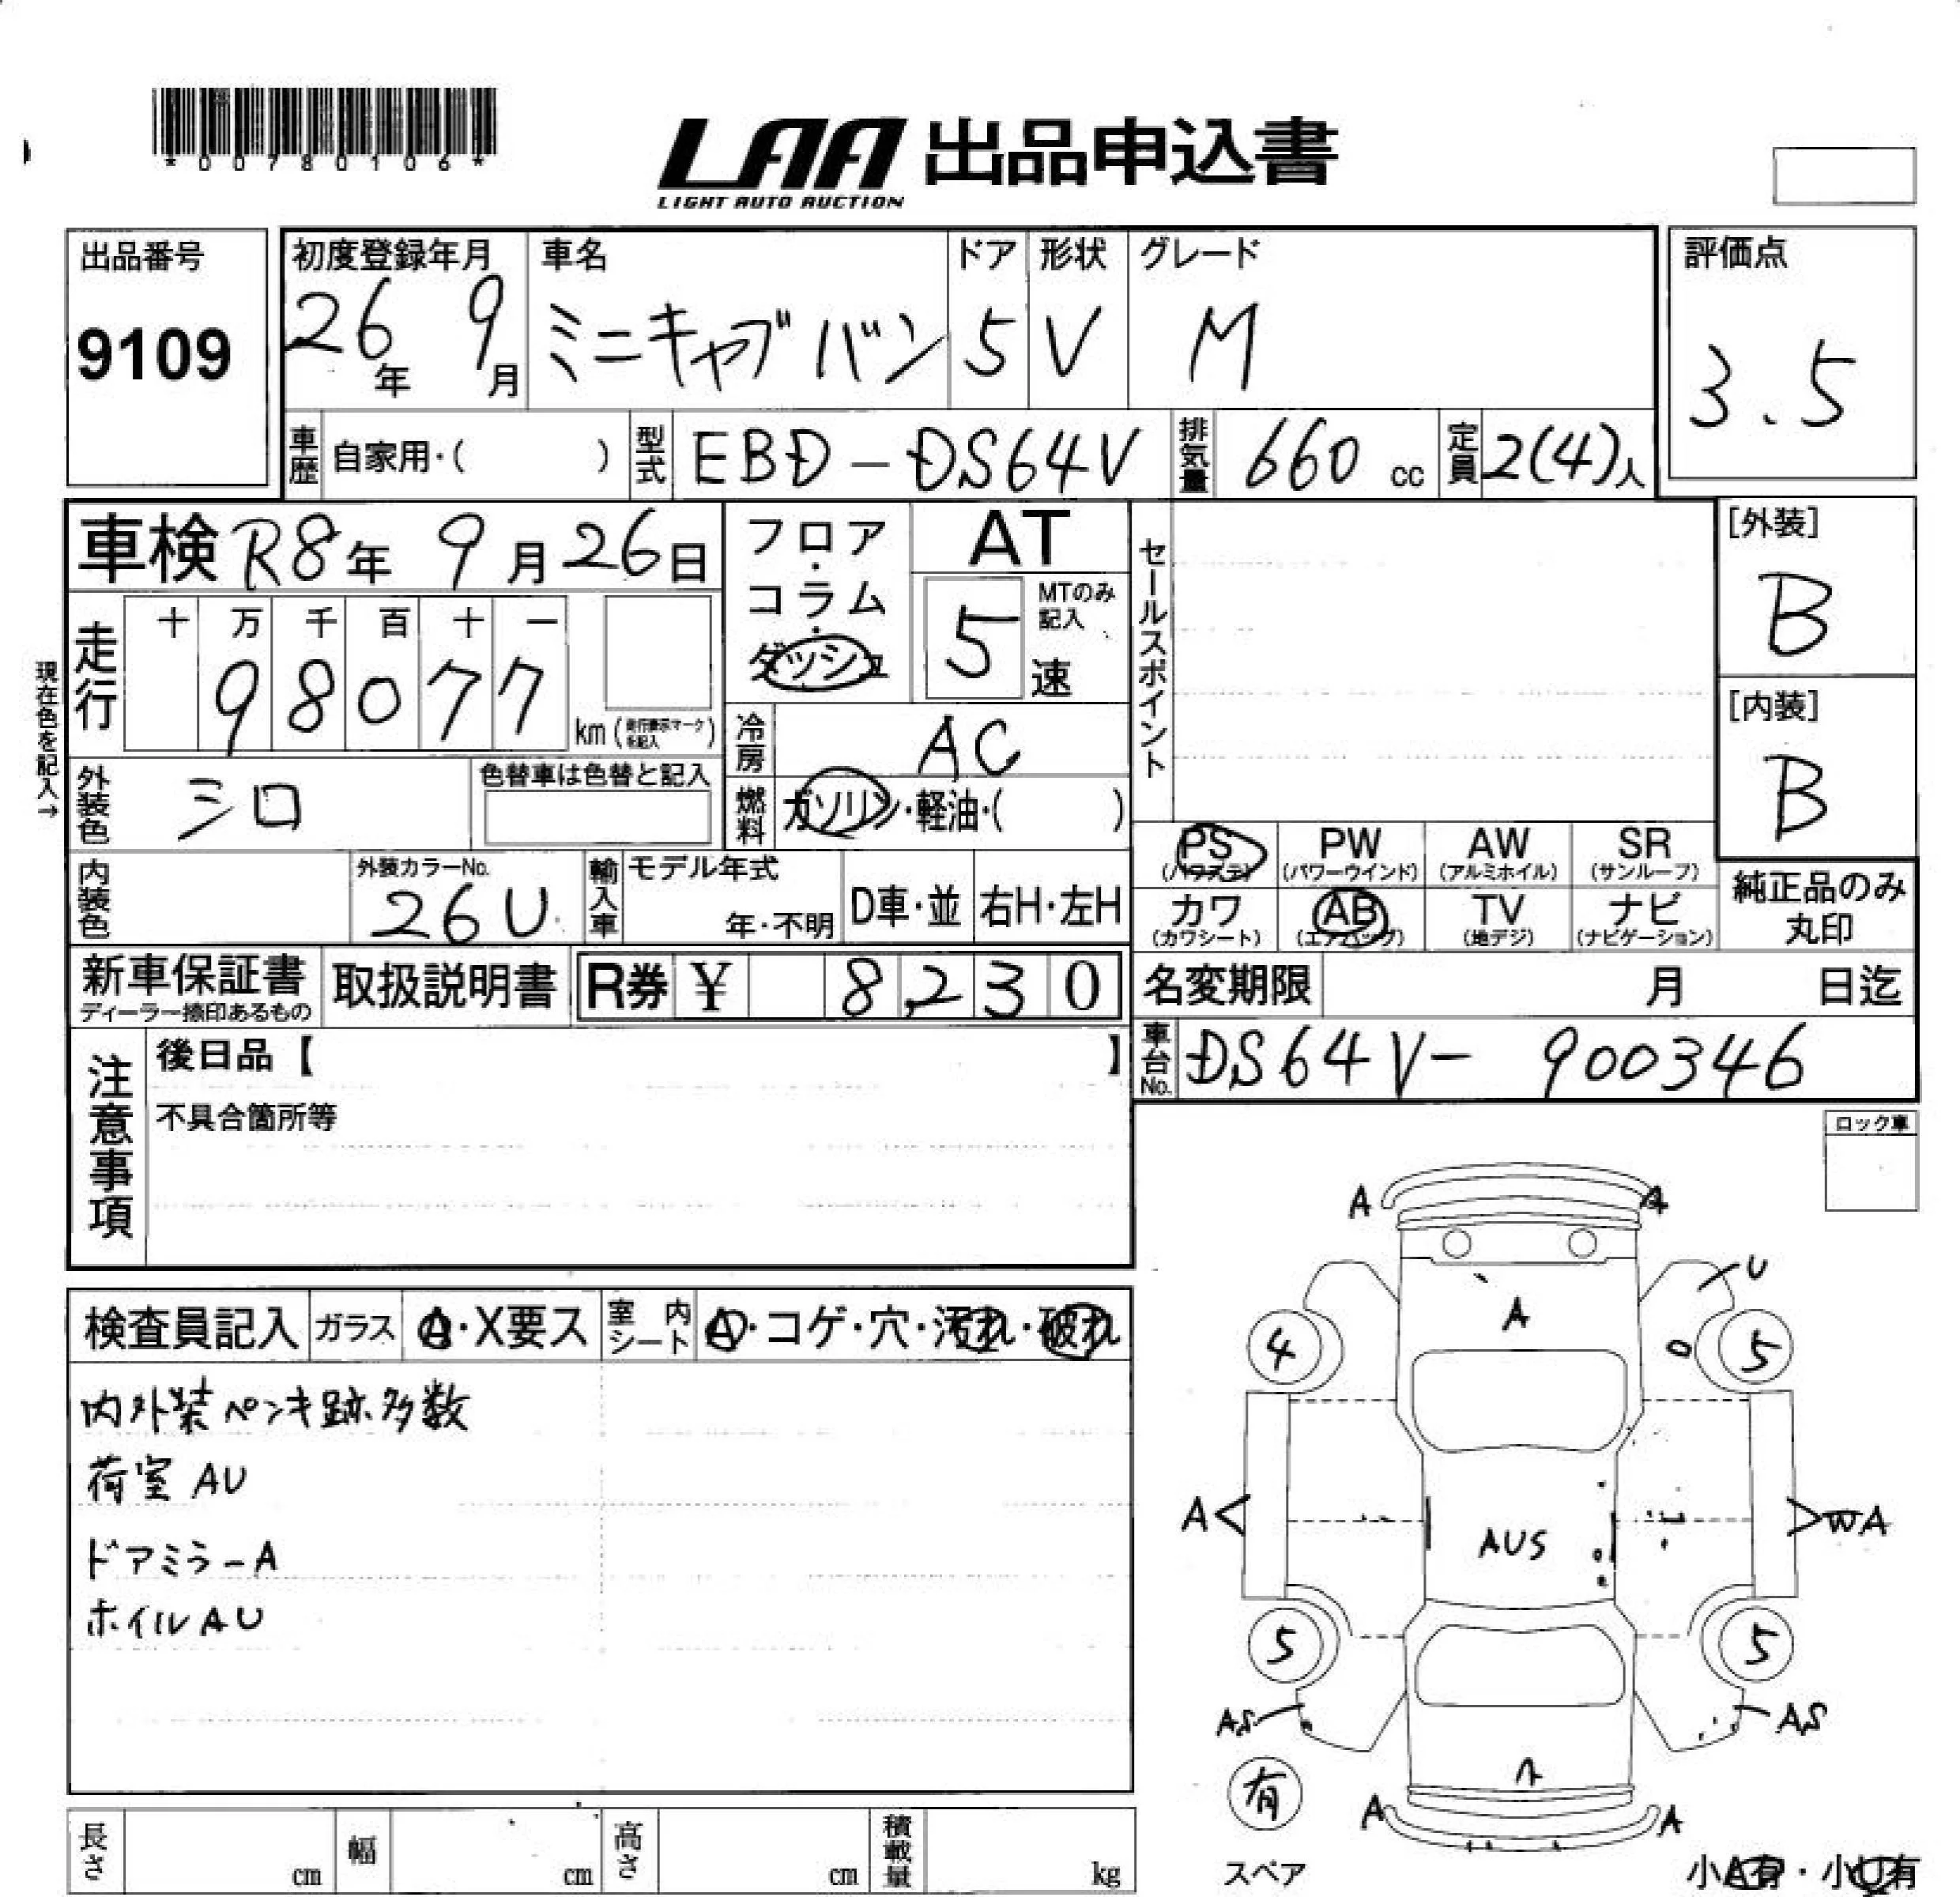 *00780106*
LAA 出品申込書
LIGHT AUTO AUCTION
出品番号
9109
初度登録年月
26年 9月
車名
ミニキャブバン
ドア
5
形状
V
グレード
M
評価点
3.5
車歴 自家用・( )
型式 EBD-DS64V
排気量 660 cc
定員 2(4)人
車検 R8年 9月26日
フロア・コラム・ダッシュ
AT
5速
MTのみ記入
セールスポイント
[外装]
B
[内装]
B
現在色を記入→
走行
十 万 千 百 十 一
9 8 0 7 7
km (走行表示マークを記入)
冷房 AC
外装色 シロ
色替車は色替と記入
燃料 ガソリン・軽油・( )
内装色
外装カラーNo.
26U
輸入車
モデル年式
年・不明
D車・並
右H・左H
PS
(パワステ)
PW
(パワーウインド)
AW
(アルミホイル)
SR
(サンルーフ)
カワ
(カワシート)
AB
(エアバッグ)
TV
(地デジ)
ナビ
(ナビゲーション)
純正品のみ
丸印
新車保証書
ディーラー捺印あるもの
取扱説明書
R券 ¥ 8,230
名変期限 月 日迄
車台No. DS64V-900346
注意事項
後日品【 】
不具合箇所等
ロック車
検査員記入
ガラス
A・X要ス
室内シート
A・コゲ・穴・汚れ・破れ
内外装ペンキ跡多数
荷室 AU
ドアミラーA
ホイルAU
A A
U
A
4 5
A WA
AUS
5 5
AS AS
A
有
A A
スペア
小A有・小U有
長さ cm
幅 cm
高さ cm
積載量 kg